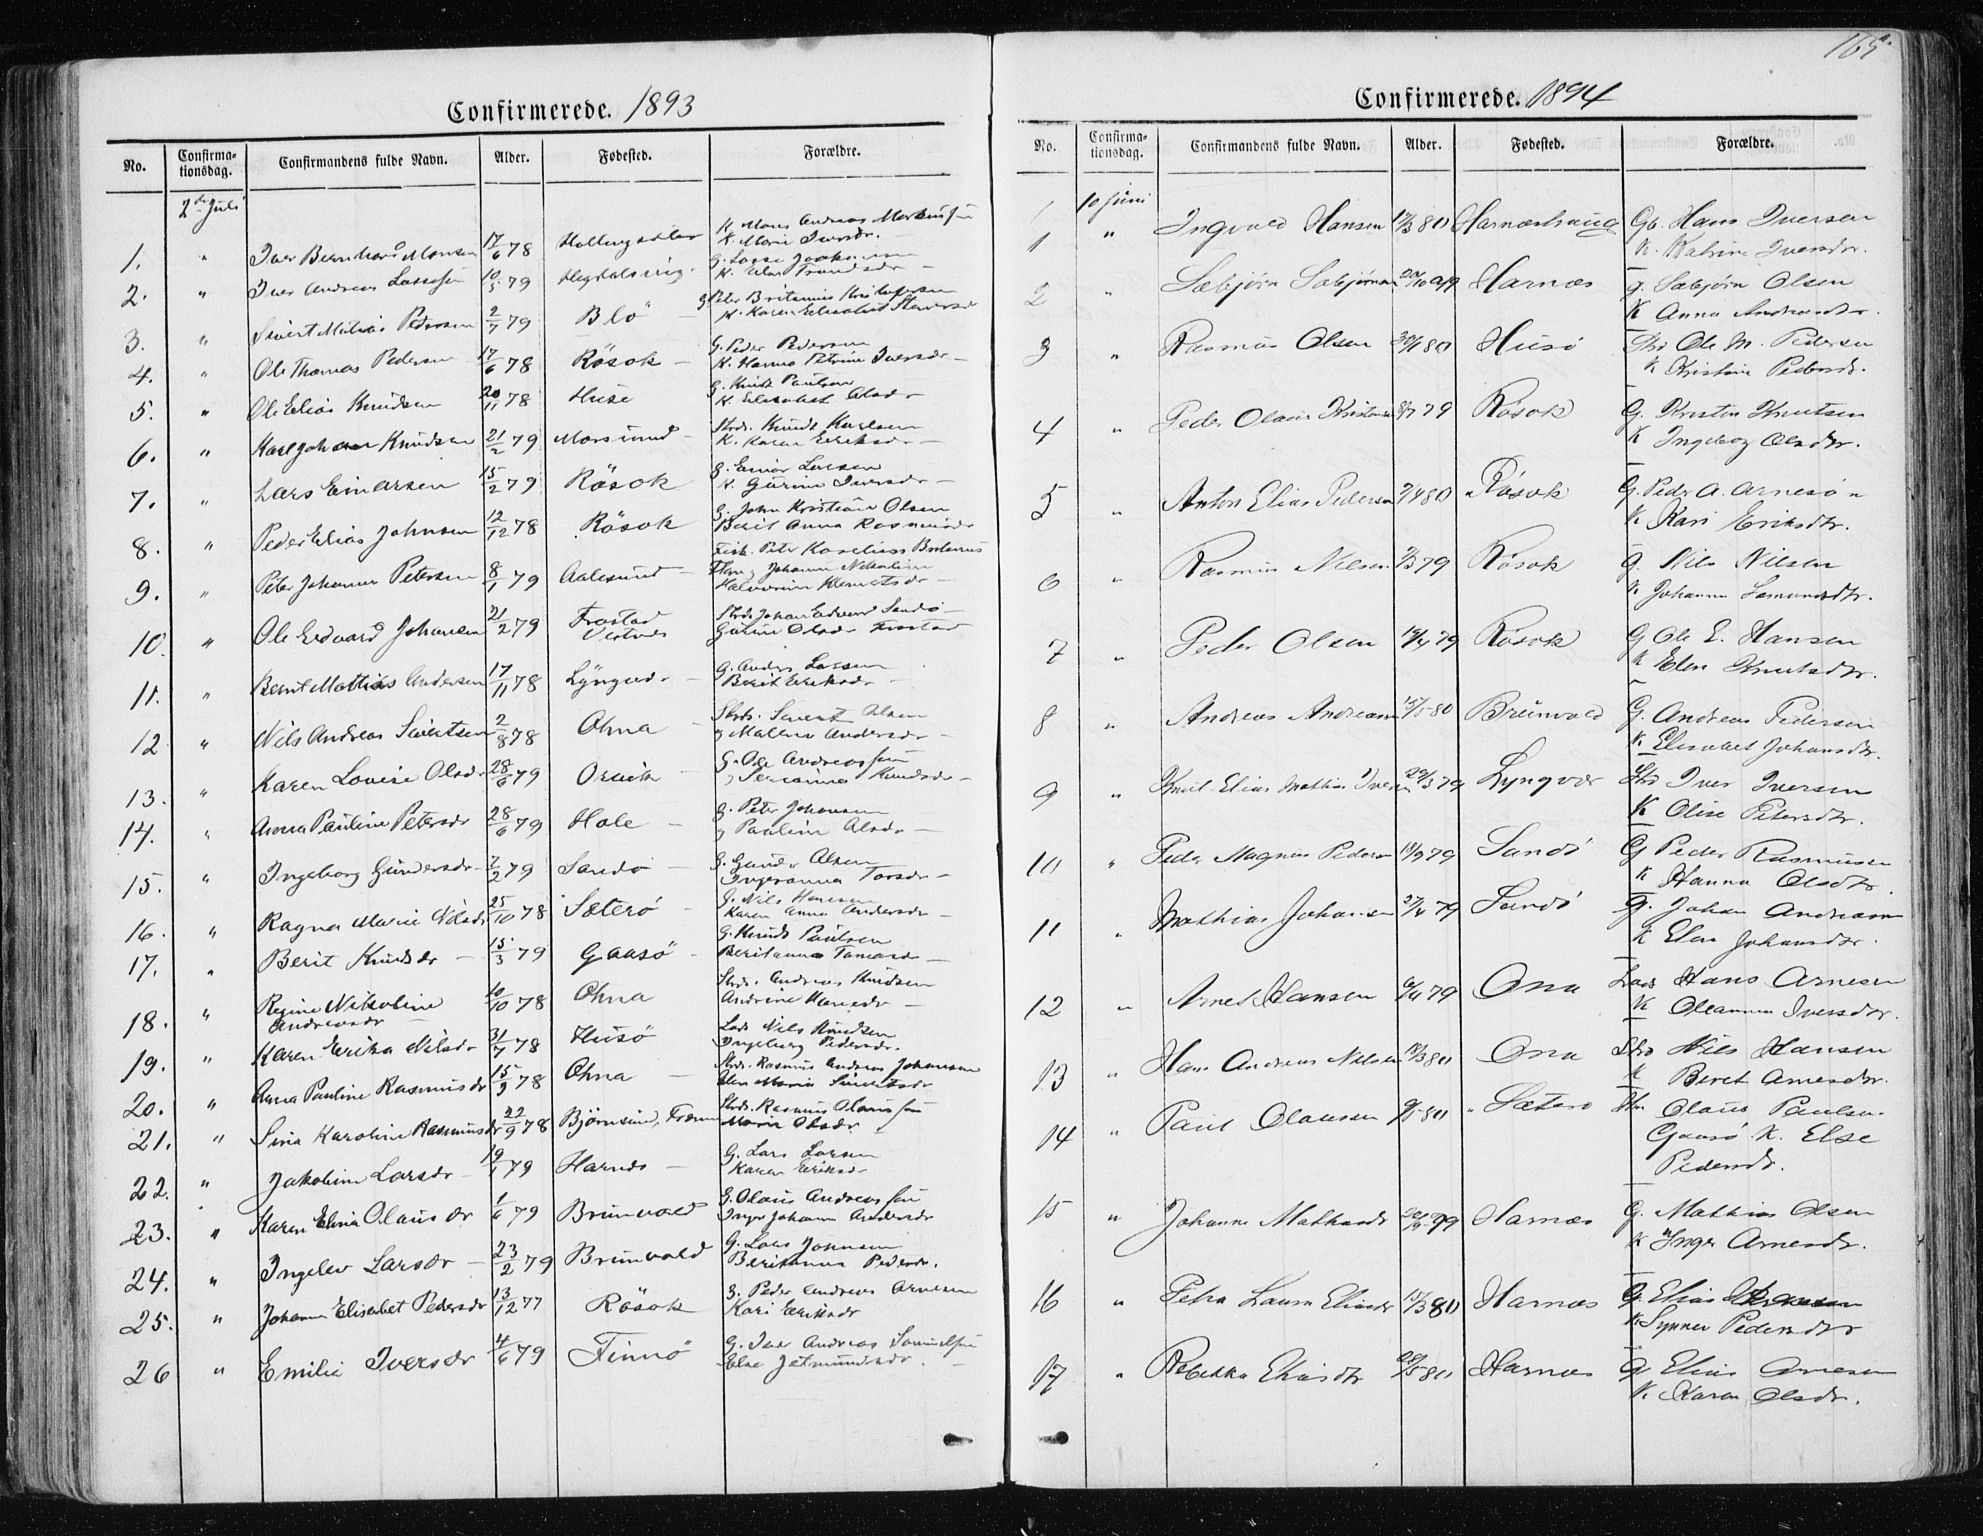 165
Confirmerede. 1893
No. Confirma-tionsdag. Confirmandens fulde Navn. Alder. Fødested. Forældre.
2den Juli
1. " Iver Bernhard Monsen 17/6 78 K. Mons Andreas Markussen
K. Marie Iversdr. —
2. " Iver Andreas Lassesen 10/5 79 G. Lasse
K. Trondsdr —
3. " Sivert Matias Pedersen 2/7 79 Blö G. Peter Kristofersen
K. Karen Elisabet
4. " Ole Thomas Pedersen 17/6 78 Rösok — G. Peder Pedersen
K. Hanna Petrine Iversdr —
5. " Ole Elias Knudsen 20/11 78 Huse G. Knut Paulsen
K. Elisabet Olsdr
6. " Karl Johan Knudsen 21/2 79 Morsund — Strds. Knudt Karlsen
K. Karen Eriksdr —
7. " Lars Einarsen 15/2 79 Rösok G. Einar Larsen
K. Gurine Iversdr —
8. " Peder Elias Johnsen 12/12 78 Rösok G. John Kristian Olsen
Berit Anna Rasmusdr
9. " Peter Johannes Petersen 8/1 79 Aalesund — Fisk. Peter
Johanne Nikoline
10. " Ole Edvard Johansen 21/2 79 Frostad
Vestnes Strds Johan Edvard Sandö —
Gurine Olsdr Frostad
11. " Bernt Mathias Andersen 17/11 78 Lyngvær — G. Anders Larsen
Berit Eriksdr —
12 " Nils Andreas Sivertsen 2/8 78 Ohna — Strds. Sivert Olsen
Malene Andersdr —
13. " Karen Lovise Olsdr 28/6 79 Orvik — G. Ole Andreassen
Knudsdr —
14. " Anna Pauline Petersdr 28/6 79 Hole — G. Peter Johansen
Pauline Olsdr —
15. " Ingeborg Gundersdr 7/2 79 Sandö — G. Gunder Olsen
Ingeranna Torsdr —
16. " Ragna Marie Nilsdr 25/10 78 Sæterö — G. Nils Hansen
Karen Anna Andersdr —
17. " Berit Knudsdr — 15/3 79 Gaasö — G. Knud Paulsen
Beritanna Tomasdr —
18. " Regine Nikoline
Andreasdr — 10/10 78 Ohna Strds. Andreas Knudsen
Andrine Hansdr —
19. " Karen Erika Nilsdr 31/7 78 Husö Lods Nils Knudsen
Ingeborg Pedersdr.
20. " Anna Pauline Rasmusdr 15/9 78 Ohna — Strds. Rasmus Andreas Johansen
Marie Sivertsdr
21. " Sina Karoline Rasmusdr 22/9 78 Björnsund, Fræna Strds. Rasmus Olaussen
Marie Olsdr —
22. " Jakobine Larsdr — 19/1 79 Harnes — G. Lars Larsen
Karen Eriksdr
23. " Karen Elina Olausdr 1/6 79 Brunvold G. Olaus Andreassen
Inger Johanne Andersdr
24. " Ingelev Larsdr — 23/2 79 Brunvold G. Lars Johnsen
Beritanna Pedersdr.
25. " Johanne Elisabet Pedersdr 13/12 77 Rösok G. Peder Andreas Arnesen
Kari Eriksdr
26 " Emilie Iversdr 4/6 79 Finnö G. Iver Andreas Samuelsen
Else Jetmundsdr. —
Confirmerede. 1894
No. Confirma-tionsdag. Confirmandens fulde Navn. Alder. Fødested. Forældre.
10 Juni
1 " Ingvald Hansen 17/3 80 Harnæshaug Gb. Hans Iversen
K. Katrine Iversdr.
2 " Sæbjørn Sæbjørnsen Harnæs G. Sæbjørn Olsen
K Anna Andreasdr.
3 " Rasmus Olsen Husö Str Ole M. Pedersen
K Kristine Pedersdr.
4 " Peder Olaus Kristensen 8/7 79 Røsok G. Kristen Knutsen
K Ingeborg Olsdtr.
5 " Anton Elias Pedersen 7/4 80 Røsok G. Peder A. Arnesøn
K Kari Eriksdtr.
6 " Rasmus Nilsen Røsok G. Nils Nilsen
K Johanne
7 " Peder Olsen 19/4 79 Røsok G Ole E. Hansen
K Elen Knutsdtr.
8 " Andreas Andreassen 15/5 80 Brunvold G. Andreas Pedersen
K. Elisabet Johansdtr.
9 " Knut Elias Mathias Iversen 29/3 79 Lyngvær Str Iver Iversen
K Oline Petersdtr.
10 " Peder Magnus Pedersen 19/9 79 Sandö G Peder Rasmussen
K Hanna Olsdtr.
11 " Mathias Johansen 27/4 79 Sandö G. Johan Andreassen
K Elen Johansdtr.
12 " Arnet Hansen 6/4 79 Ona Lods Hans Arnesen
K Oleanna Iversdtr.
13 " Hans Andreas Nilsen 19/3 80 Ona Str Nils Hansen
K Beret Arnesdtr.
14 " Paul Olausen 9/5 80 Sæterö Str Olaus Paulsen
Gaasö K. Else
Pedersdtr.
15 " Johanne Mathiasdr Harnæs G. Mathias Olsen
K Inger Arnesdr.
16 " Petra Laura Eliasdr 17/3 80 Harnæs G. Elias
K Synnev Pedersdtr
17 " Rebekka Eliasdtr 28/5 80 Harnæs G Elias Arnesen
K. Karen Olsdr.